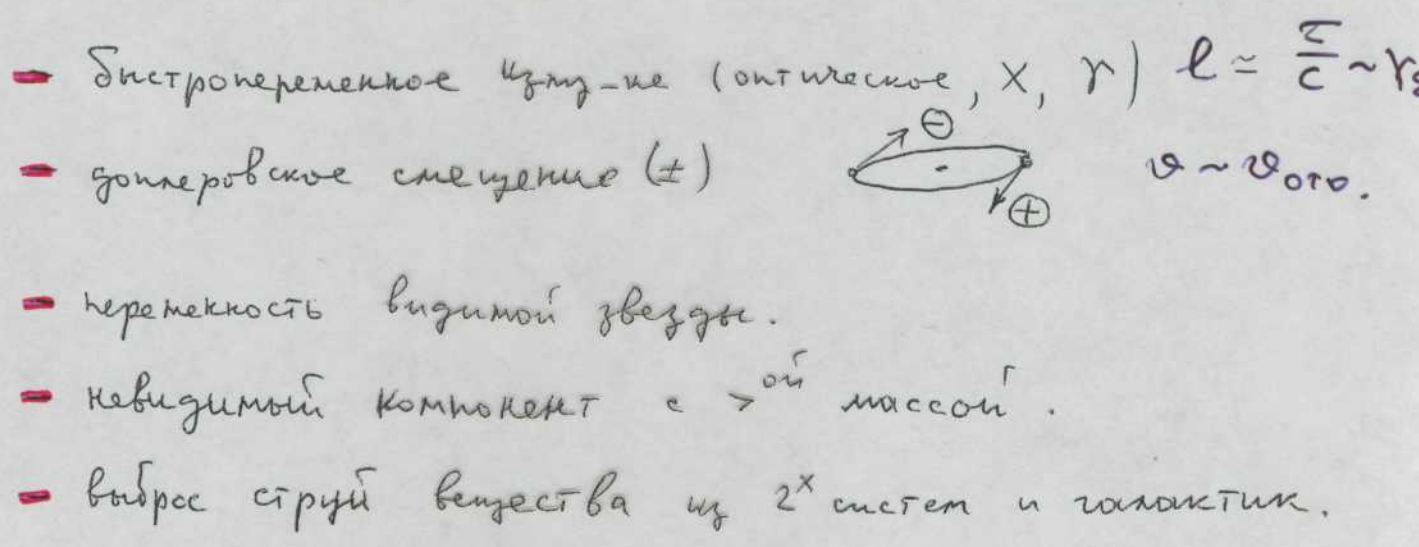 - быстропеременное излу-ие (оптическое, X, γ) l ≃ τ/c ~ r
⊖
- доплеровское смещение (±) v ~ v
⊕
- переменность видимой звезды.
- невидимый компонент с >ой массой.
- выброс струй вещества из 2х систем и галактик.